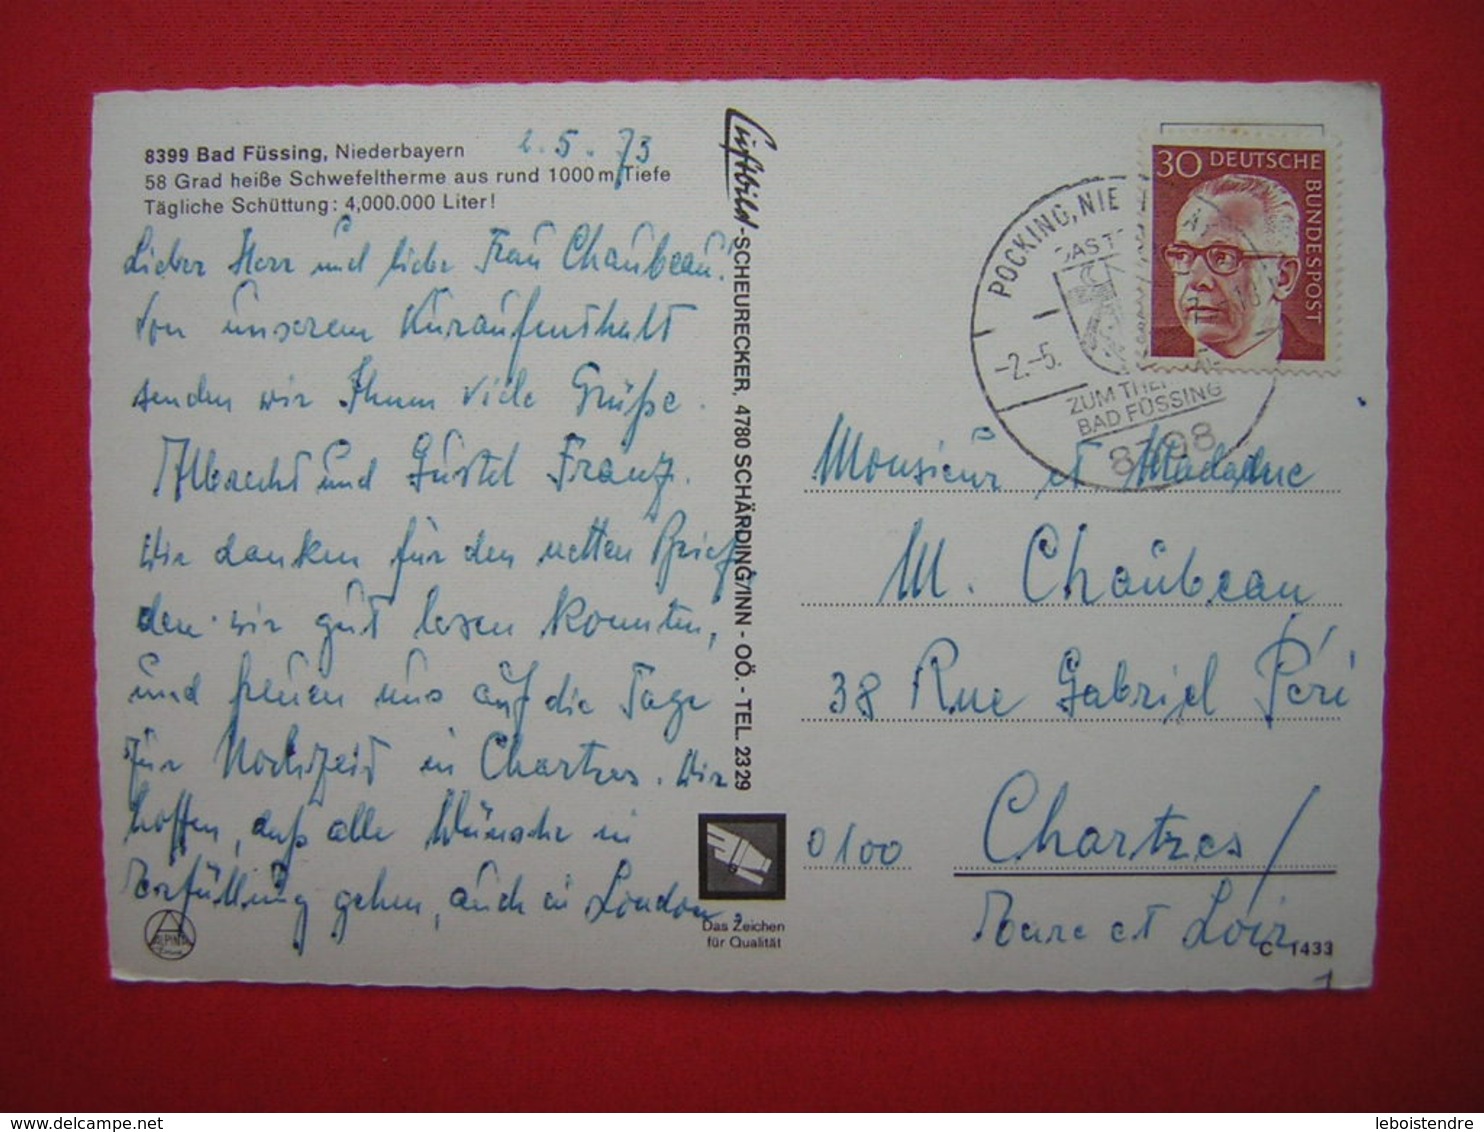 8399 Bad Füssing, Niederbayern
2.5.73
58 Grad heiße Schwefeltherme aus rund 1000 m Tiefe
Tägliche Schüttung: 4,000.000 Liter!
Lieber Herr und liebe Frau Chaubeau!
Von unserem Kuraufenthalt
senden wir Ihnen viele Grüße.
Albrecht und Gustel Franz.
Wir danken für den netten Brief,
den wir gut lesen konnten,
und freuen uns auf die Tage
zur Hochzeit in Chartres. Wir
hoffen, daß alle Wünsche in
Erfüllung gehen, auch in London.
ALPINA
Luftbild-SCHEURECKER, 4780 SCHÄRDING/INN - OÖ. - TEL. 2329
Das Zeichen
für Qualität
30 DEUTSCHE
BUNDESPOST
POCKING, NIE
-2.-5.
ZUM THE
BAD FÜSSING
8398
Monsieur et Madame
M. Chaubeau
38 Rue Gabriel Péri
0100 Chartres/
Eure et Loir
C 1433
1
leboistendre